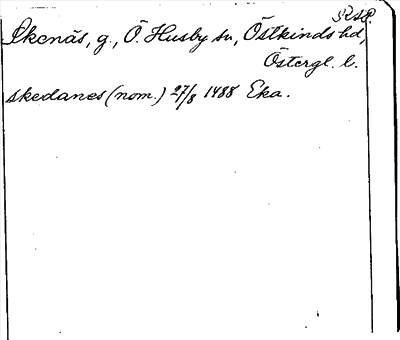 Skenäs, g., Ö. Husby sn, Östkinds hd,
Östergl. l.
skedanes (nom.) 27/8 1488 Eka.